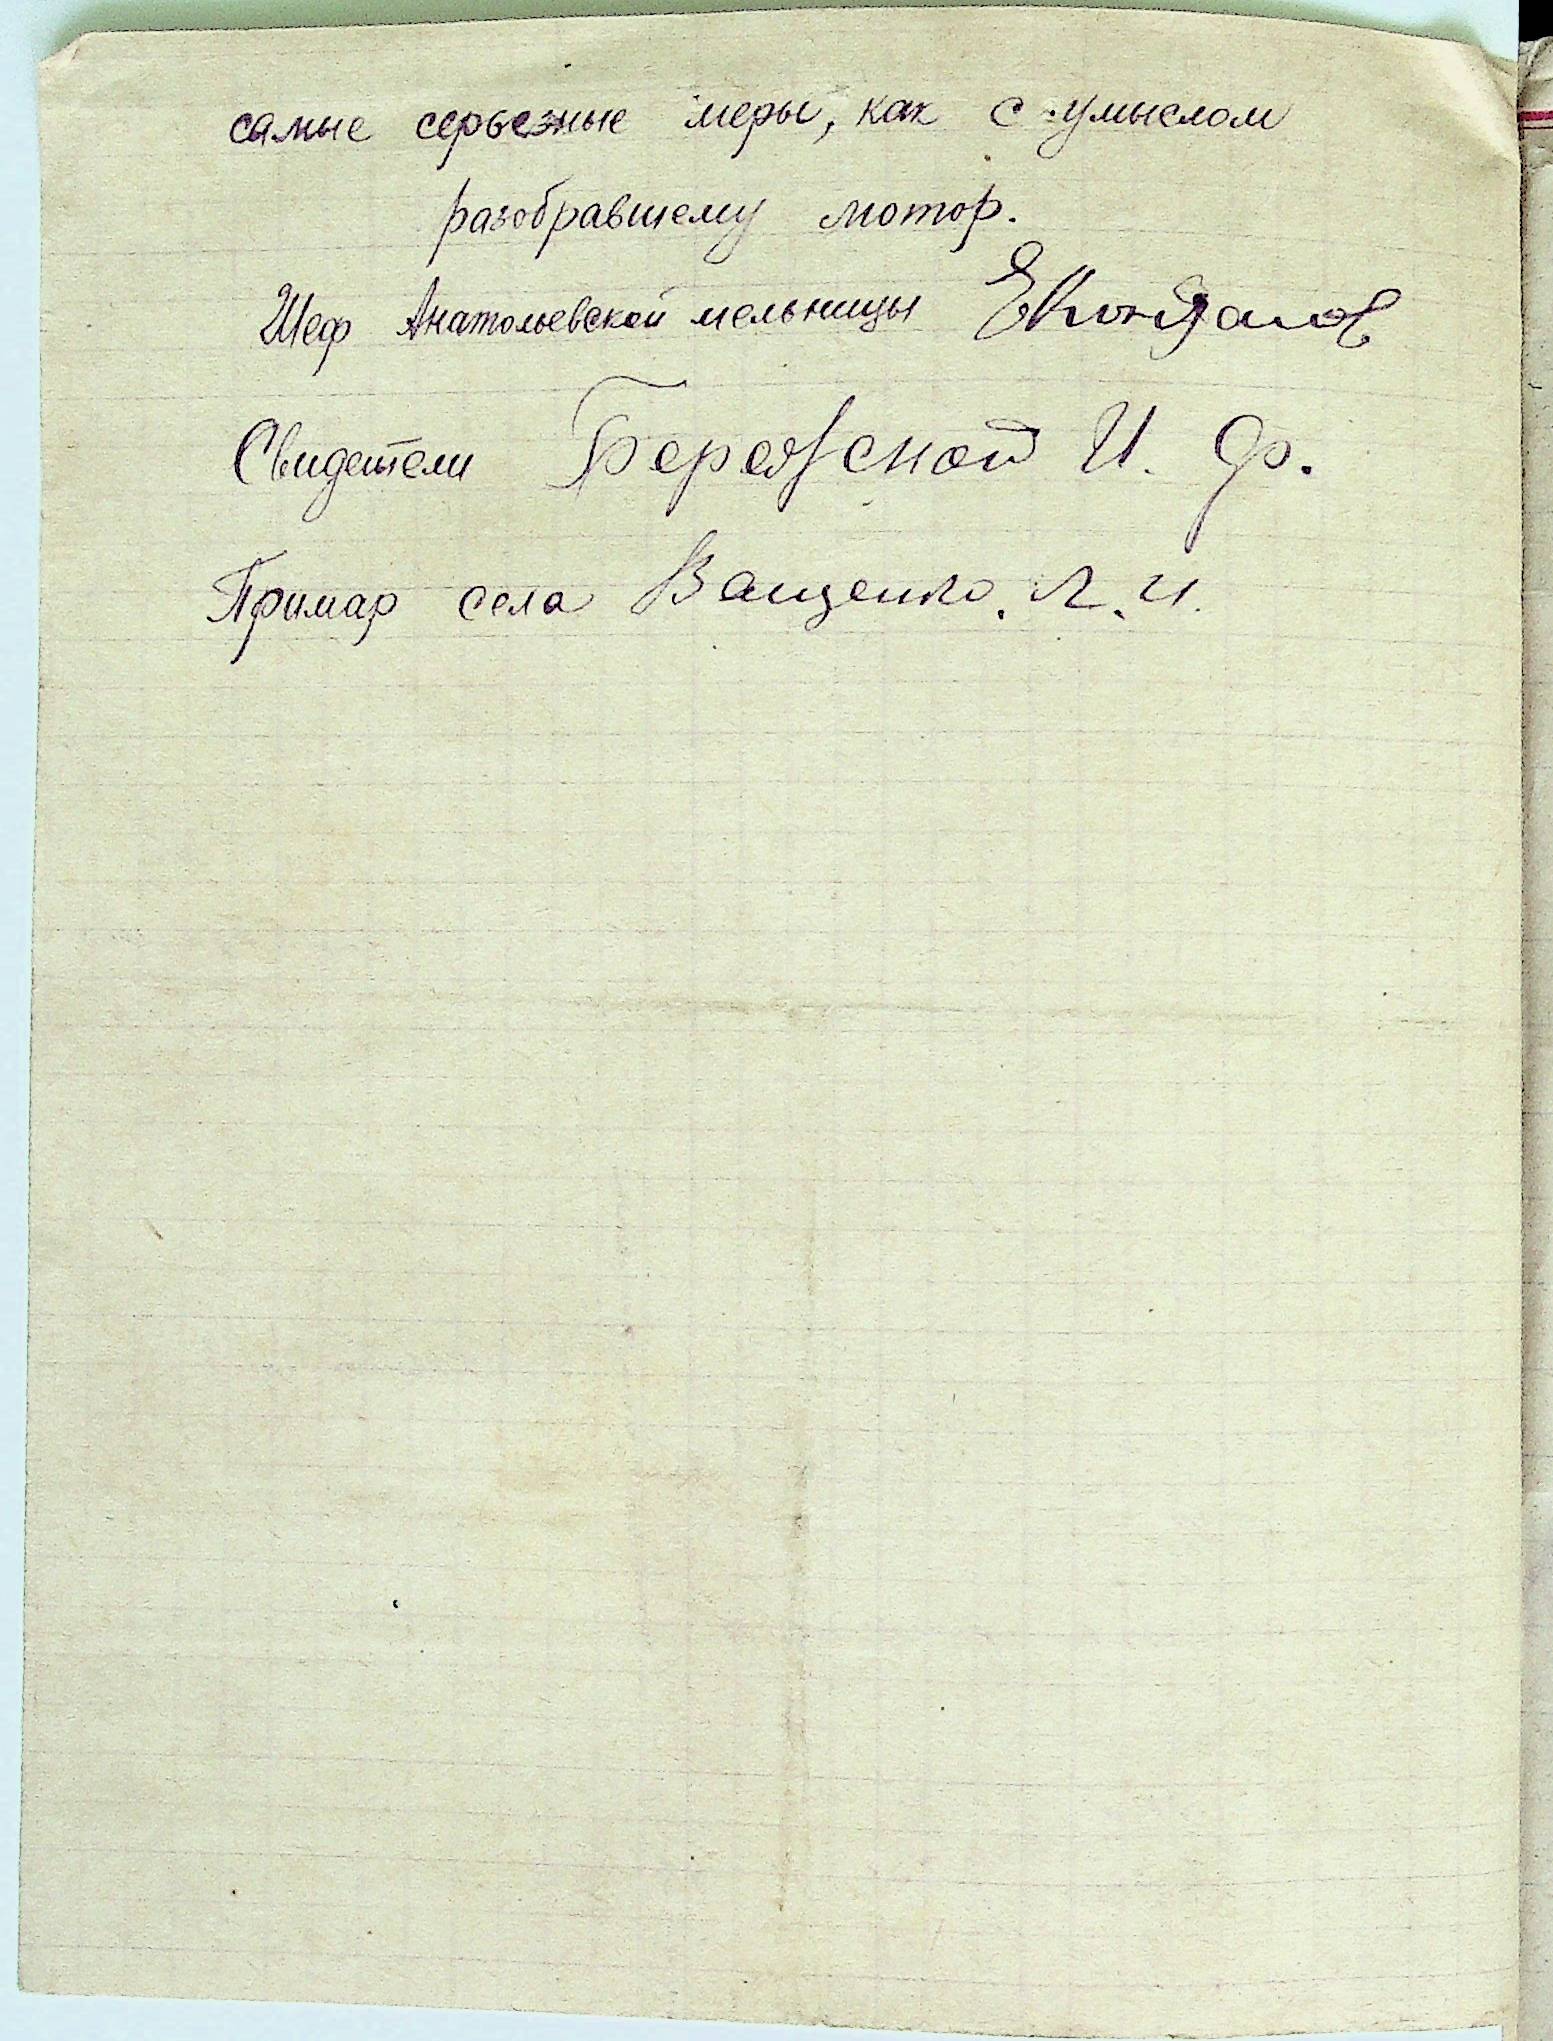 самые серьезные меры, как с умыслом
разобравшему мотор.
Шеф Анатольевской мельницы
Свидетели И. Ф.
Примар села Ващенко. Л. И.